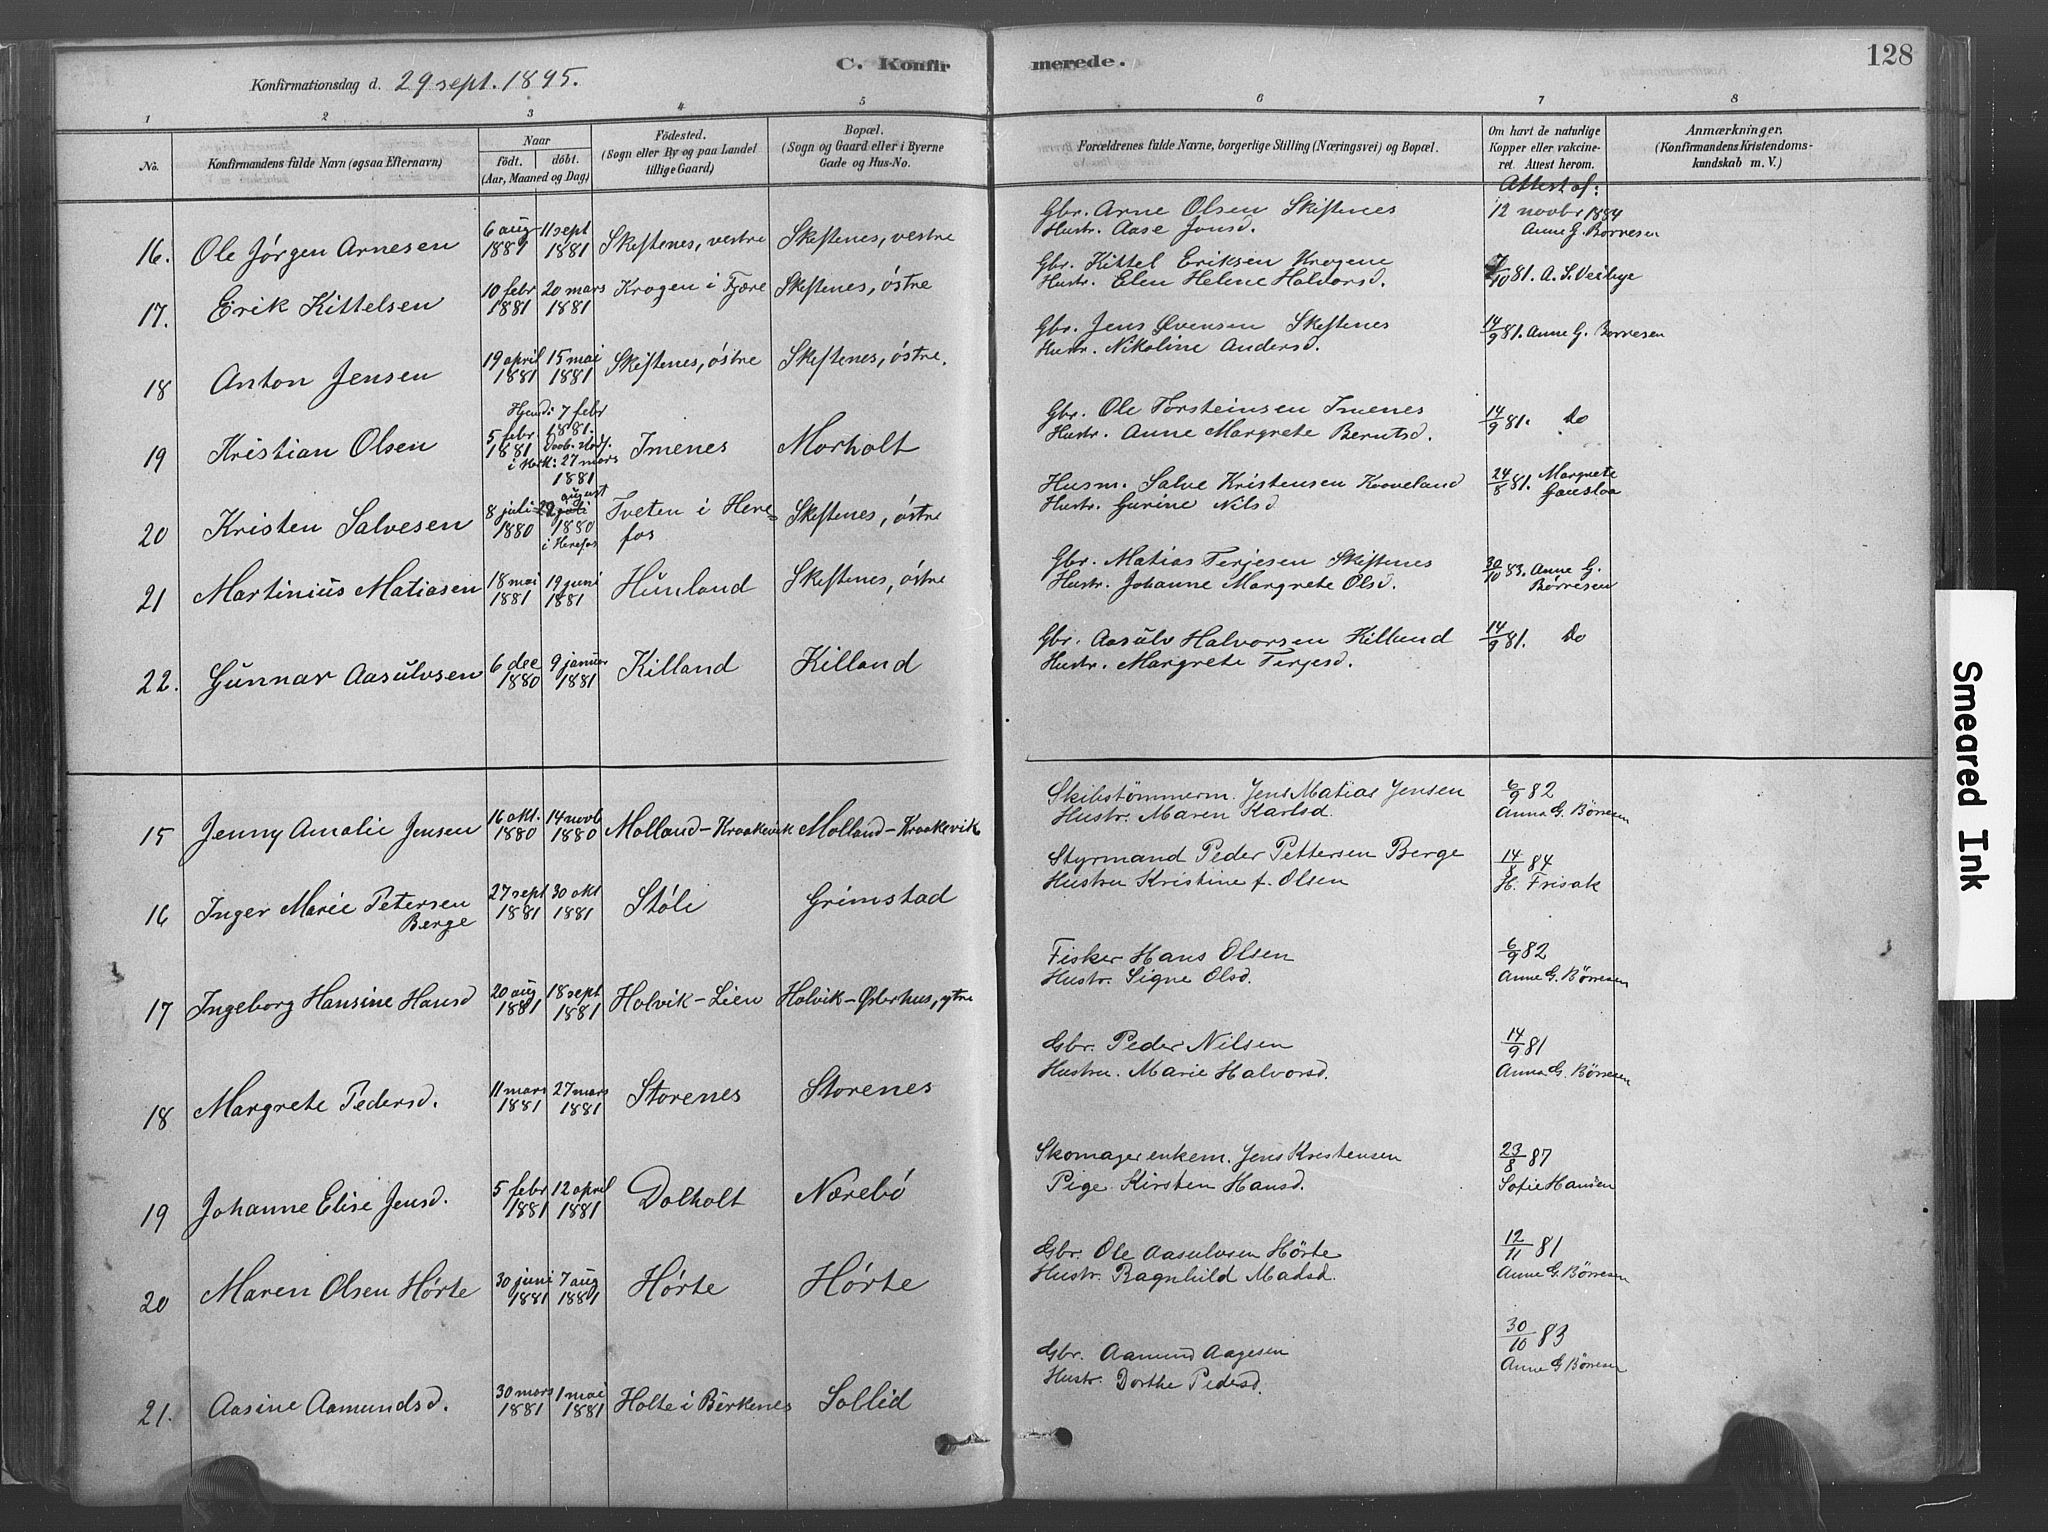 C. Konfirmerede.
128
Konfirmationsdag d. 29 sept. 1895.
1 2 3 4 5 6 7 8
No.
Konfirmandens fulde Navn (ogsaa Efternavn)
Naar
födt. döbt.
(Aar, Maaned og Dag)
Födested.
(Sogn eller By og paa Landet
tillige Gaard)
Bopæl.
(Sogn og Gaard eller i Byerne
Gade og Hus-No.
Forældrenes fulde Navne, borgerlige Stilling (Næringsvei) og Bopæl.
Om havt de naturlige
Kopper eller vakcine-
ret. Attest herom.
Anmærkninger.
(Konfirmandens Kristendoms-
kundskab m. V.)
Attest af:
16. Ole Jórgen Arnesen 6 aug 1881 11 sept 1881 Skeftenes, vestre Skeftenes, vestre
Gbr. Arne Olsen Skiftenes
Hustr. Aase Jonsd.
12 novbr 1884
Anne G. Børresen
17. Erik Kittelsen 10 febr 1881 20 mars 1881 Krogen i Fjære Skeftenes, óstre
Gbr. Kittel Eriksen Krogene
Hustr. Elen Helene Halvorsd.
/10 81. A. S. Veibye
18 Anton Jensen 19 april 1881 15 mai 1881 Skiftenes, óstre Skeftenes, óstre.
Gbr. Jens Øvensen Skeftenes
Hustr. Nikoline Andersd.
14/9 81. Anne G. Børresen
19 Kristian Olsen 5 febr. 1881 Hjemd: 7 febr 1881. Daab. stadf. i Kirk: 27 mars 1881 Imenes Morholt
Gbr. Ole Torsteinsen Imenes
Hustr. Anne Margrete Berntsd.
14/9 81. Do
20 Kristen Salvesen 8 juli 1880 22 juli august 1880 i Herefos Tveten i Here=
fos Skeftenes, óstre
Husm. Salve Kristensen Kroveland
Hustr. Gurine Nilsd
24/8 81. Margrete
Gauslaa
21 Martinius Matiasen 18 mai 1881 19 juni 1881 Hunland Skeftenes, óstre
Gbr. Matias Terjesen Skiftenes
Hustr. Johanne Margrete Olsd.
30/10 83. Anne G.
Børresen
22. Gunnar Aasulvsen 6 dec 1880 9 januar 1881 Killand Killand
Gbr. Aasulv Halvorsen Killand
Hustr. Margrete Terjesd.
14/9 81. Do
15 Jenny Amalie Jensen 16 okt. 1880 14 novb 1880 Molland-Kraakevik Molland-Kraakevik
Skibstømmerm. Jens Matias Jensen
Hustr. Maren Karlsd.
6/9 82
Anne G. Børresen
16 Inger Marie Petersen
Berge 27 sept 1881 30 okt 1881 Stóle Grimstad
Styrmand Peder Pettersen Berge
Hustru Kristine f. Olsen
14/8 84
H. Frisak
17 Ingeborg Hansine Hansd 20 aug 1881 18 sept 1881 Holvik-Lien Holvik-Østerhus, ytre
Fisker Hans Olsen
Hustr. Signe Olsd.
6/9 82
Anne G. Børresen
18 Margrete Pedersd. 11 mars 1881 27 mars 1881 Storenes Storenes
Gbr. Peder Nilsen
Hustru. Marie Halvorsd.
14/9 81
Anne G. Børresen
19 Johanne Elise Jensd. 5 febr 1881 12 april 1881 Dolholt Nærebó
Skomager enkem. Jens Kristensen
Pige Kirsten Hansd.
23/8 87
Sofie Hansen
20 Maren Olsen Hórte 30 juni 1881 7 aug 1881 Hórte Hórte
Gbr. Ole Aasulvsen Hórte
Hustr. Ragnhild Madsd.
12/11 81
Anne G. Børresen
21. Aasine Aamundsd. 30 mars 1881 1 mai 1881 Holte i Birkenes Sollid
Gbr. Aamund Aagesen
Hustr. Dorthe Pedersd.
30/10 83
Anne G. Børresen
Smeared Ink